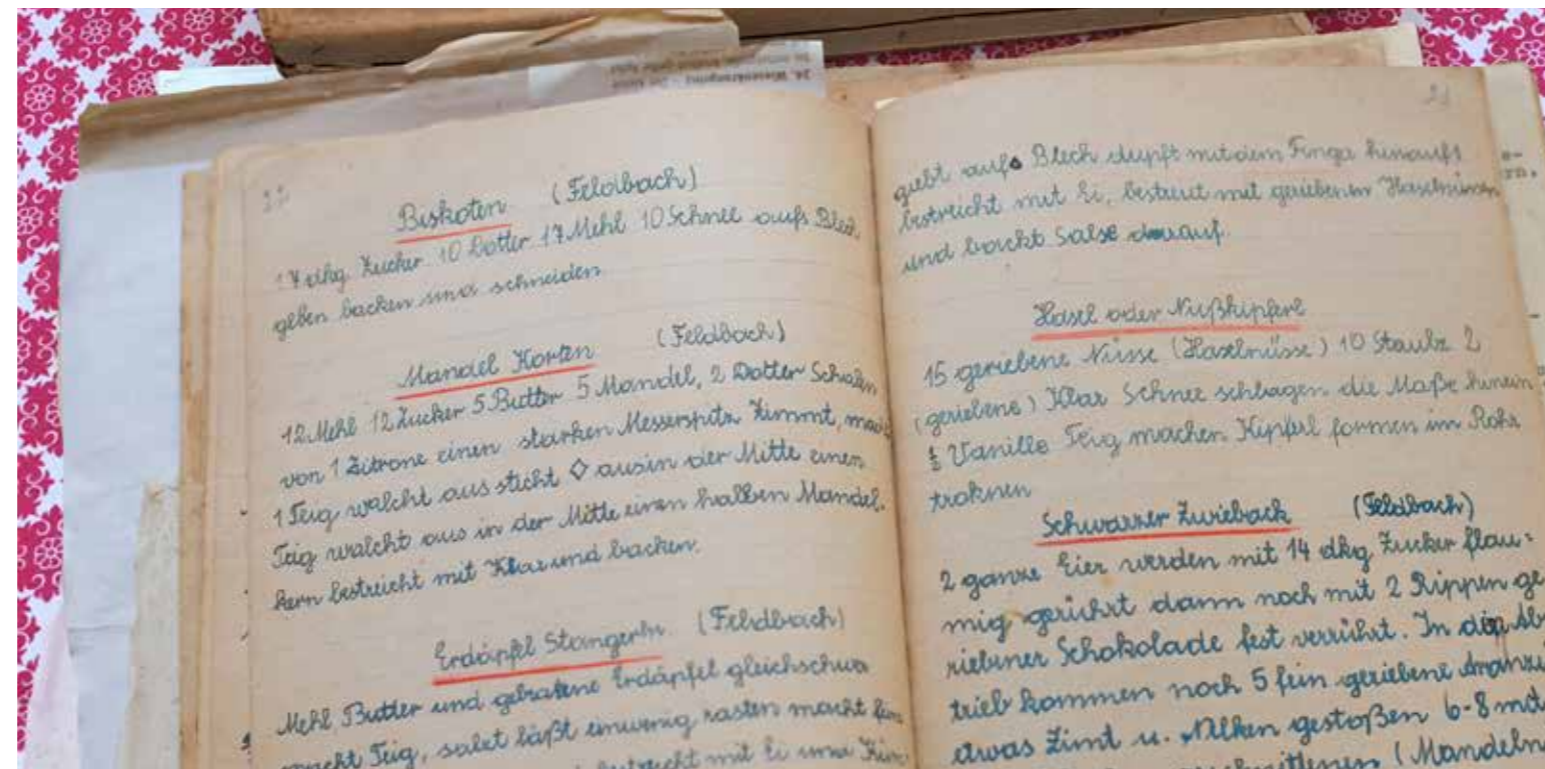 Biskoten (Feldbach)
17 dkg. Zucker 10 Dotter 17 Mehl 10 Schnee aufs Blech
geben backen und schneiden
Mandel Korten (Feldbach)
12 Mehl 12 Zucker 5 Butter 5 Mandel, 2 Dotter Schalen
von 1 Zitrone einen starken Messerspitz Zimmt, macht
1 Teig walcht aus sticht ◊ aus in der Mitte einen
Teig walcht aus in der Mitte einen halben Mandel.
kern bestreicht mit Klar und backen.
Erdäpfel Stangerln (Feldbach)
Mehl Butter und gebratene Erdäpfel gleichschwer
macht Teig, salzt läßt einwenig rasten macht
bestreicht mit Ei und
21
giebt aufs Blech dupft mit dem Finga hinauf
bestreicht mit Ei, bestreut mit geriebenen Haselnüssen
und backt Salse darauf.
Hasel oder Nußkipferl
15 geriebene Nüsse (Haselnüsse) 10 Staubz 2
(geriebene) Klar Schnee schlagen die Maße hinein
½ Vanille Teig machen Kipferl formen im Rohr
troknen
Schwarzer Zwieback (Feldbach)
2 ganze Eier werden mit 14 dkg Zucker flau=
mig gerührt dann noch mit 2 Rippen ge
riebener Schokolade fest verrührt. In den Ab
trieb kommen noch 5 fein geriebene
etwas Zimt u. Nelken gestoßen 6-8 mit
(Mandeln